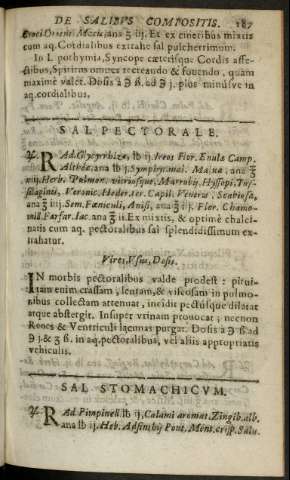 DE SALIBVS COMPOSITIS. 187
Croci Orient. Macis, ana ʒ iij. Ex ex cineribus mixtis
cum aq. Cordialibus extrahe sal pulcherrimum.
In Lipothymia, Syncope cæterisque Cordis affe-
ctibus, Spiritus omnes recreando & fouendo, quam
maximè valet. Dosis à ℈ ß. ad ℈ j. plus minusve in
aq. cordialibus.
SAL PECTORALE.
℞ Rad. Glycyrrhizæ, lb ij. Ireos Flor. Enula Camp.
Altheæ, ana lb j. Symphyt. mai. Malua, ana ℥
iiij. Herb. Pulmon. vtriusque, Marrubij, Hyssopi, Tus-
silaginis, Veronic. Heder. ter. Capil. Veneris, Scabiosæ,
ana ℥ iij. Sem. Fœniculi, Anisi, ana ℥ ij. Flor. Chamo-
mill. Farfar. Iac. ana ℥ ii. Ex mixtis, & optimè chalci-
natis cum aq. pectoralibus sal splendidissimum ex-
trahatur.
Vires, Vsus, Dosis.
IN morbis pectoralibus valde prodest: pitui-
tam enim crassam, lentam, & viscosam in pulmo-
nibus collectam attenuat, incidit pectusque dilatat
atque abstergit. Insuper vrinam prouocat; necnon
Renes & Ventriculi lacunas purgat. Dosis à ℈ ß ad
℈ j. & ʒ ß. in aq. pectoralibus, vel aliis appropriatis
vehiculis.
SAL STOMACHICVM.
℞ Rad. Pimpinell. lb ij. Calami aromat. Zingib. alb.
ana lb ij. Heb. Absinthij Pont. Ment. crisp. Salu.